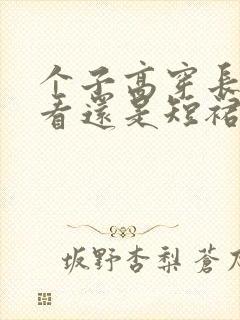 个子高穿長
看還是短裙
坂野杏梨蒼